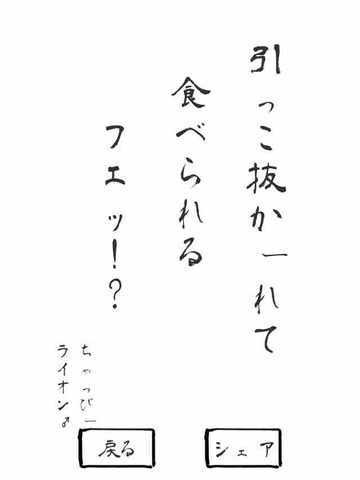 引っこ抜かーれて
食べられる
フエッ!?
ちゃっぴー
ライオン♂
戻る
シェア